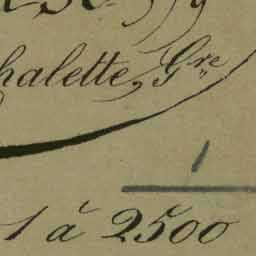 halette, Gre
1
1 à 2500